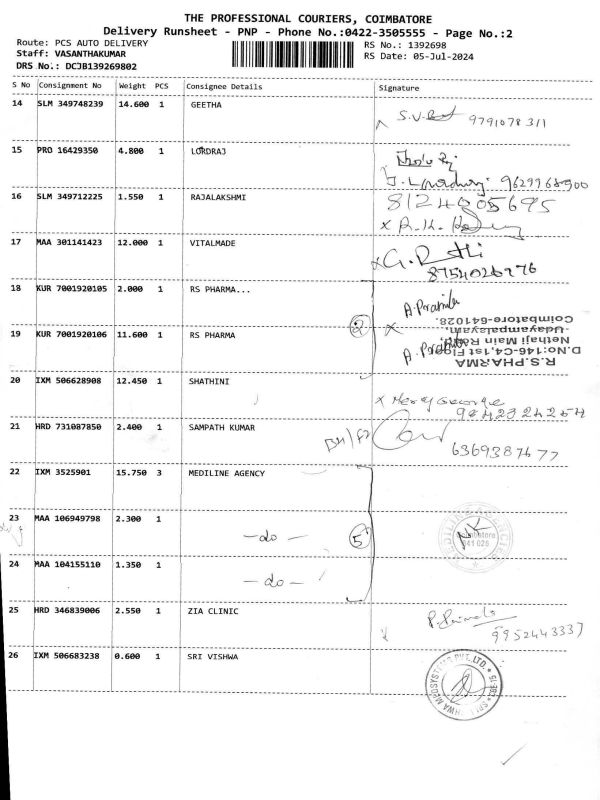 THE PROFESSIONAL COURIERS, COIMBATORE
Delivery Runsheet - PNP - Phone No.:0422-3505555 - Page No.:2
Route: PCS AUTO DELIVERY
Staff: VASANTHAKUMAR
DRS No.: DCJB139269802
RS No.: 1392698
RS Date: 05-Jul-2024
S No Consignment No Weight PCS Consignee Details Signature
14 SLM 349748239 14.600 1 GEETHA
9791078311
15 PRO 16429350 4.800 1 LORDRAJ
16 SLM 349712225 1.550 1 RAJALAKSHMI
8124005695
17 MAA 301141423 12.000 1 VITALMADE
18 KUR 7001920105 2.000 1 RS PHARMA...
19 KUR 7001920106 11.600 1 RS PHARMA
2
R.S.PHARMA
D.No:146-C4,1st Floor
Nethaji Main Road,
Udayampalayam,
Coimbatore-641028.
20 IXM 506628908 12.450 1 SHATHINI
x Mercy George
21 HRD 731087850 2.400 1 SAMPATH KUMAR
22 IXM 3525901 15.750 3 MEDILINE AGENCY
23 MAA 106949798 2.300 1
-do-
5
24 MAA 104155110 1.350 1
-do-
25 HRD 346839006 2.550 1 ZIA CLINIC
9952443337
26 IXM 506683238 0.600 1 SRI VISHWA